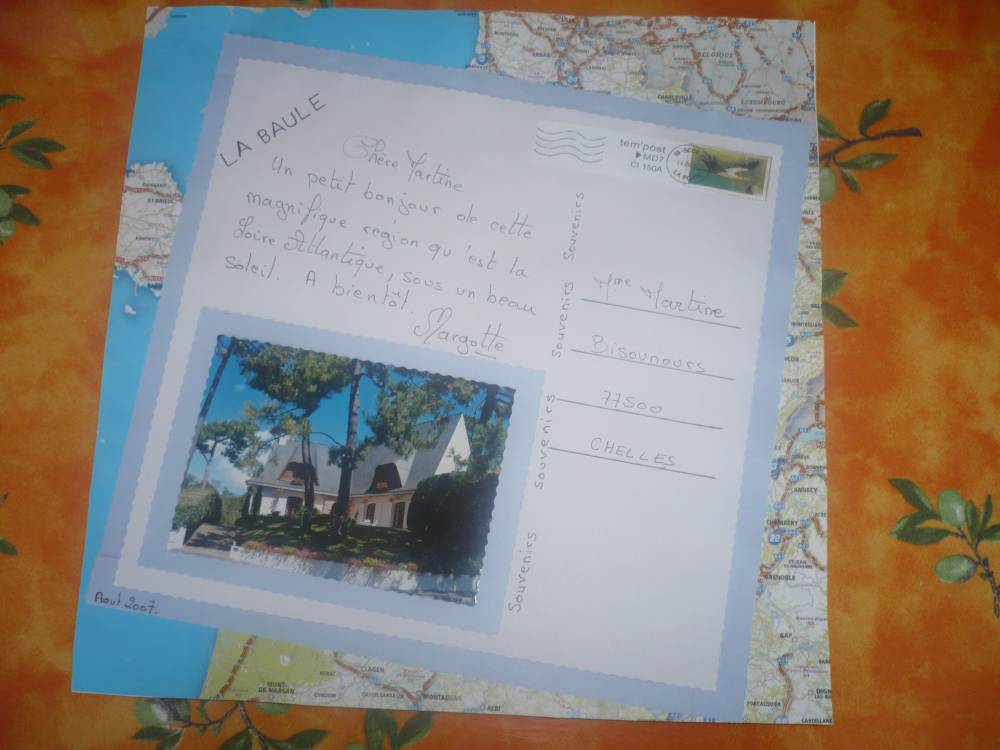 LA BAULE
Chère Martine
Un petit bonjour de cette
magnifique région qu'est la
Loire Atlantique, sous un beau
soleil. A bientôt.
Margotte
Août 2007.
tem'post
MD7
CI 150A
Souvenirs
Souvenirs
Souvenirs
Souvenirs
Mme Martine
Bisounours
77500
CHELLES
BELGIQUE
LUXEMBOURG
CHARLEVILLE
ST-BRIEUC
ANNECY
CHAMBÉRY
GRENOBLE
GAP
AGEN
MONT-
DE MARSAN
CONDOM
CASTELSARRASIN
MONTAUBAN
ALBI
FORCALQUIER
CASTELLANE